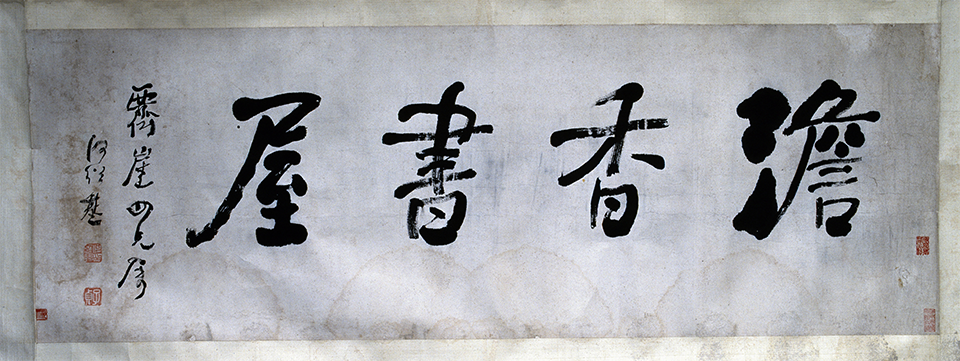 澹香書屋
霽崖四兄屬
何紹基